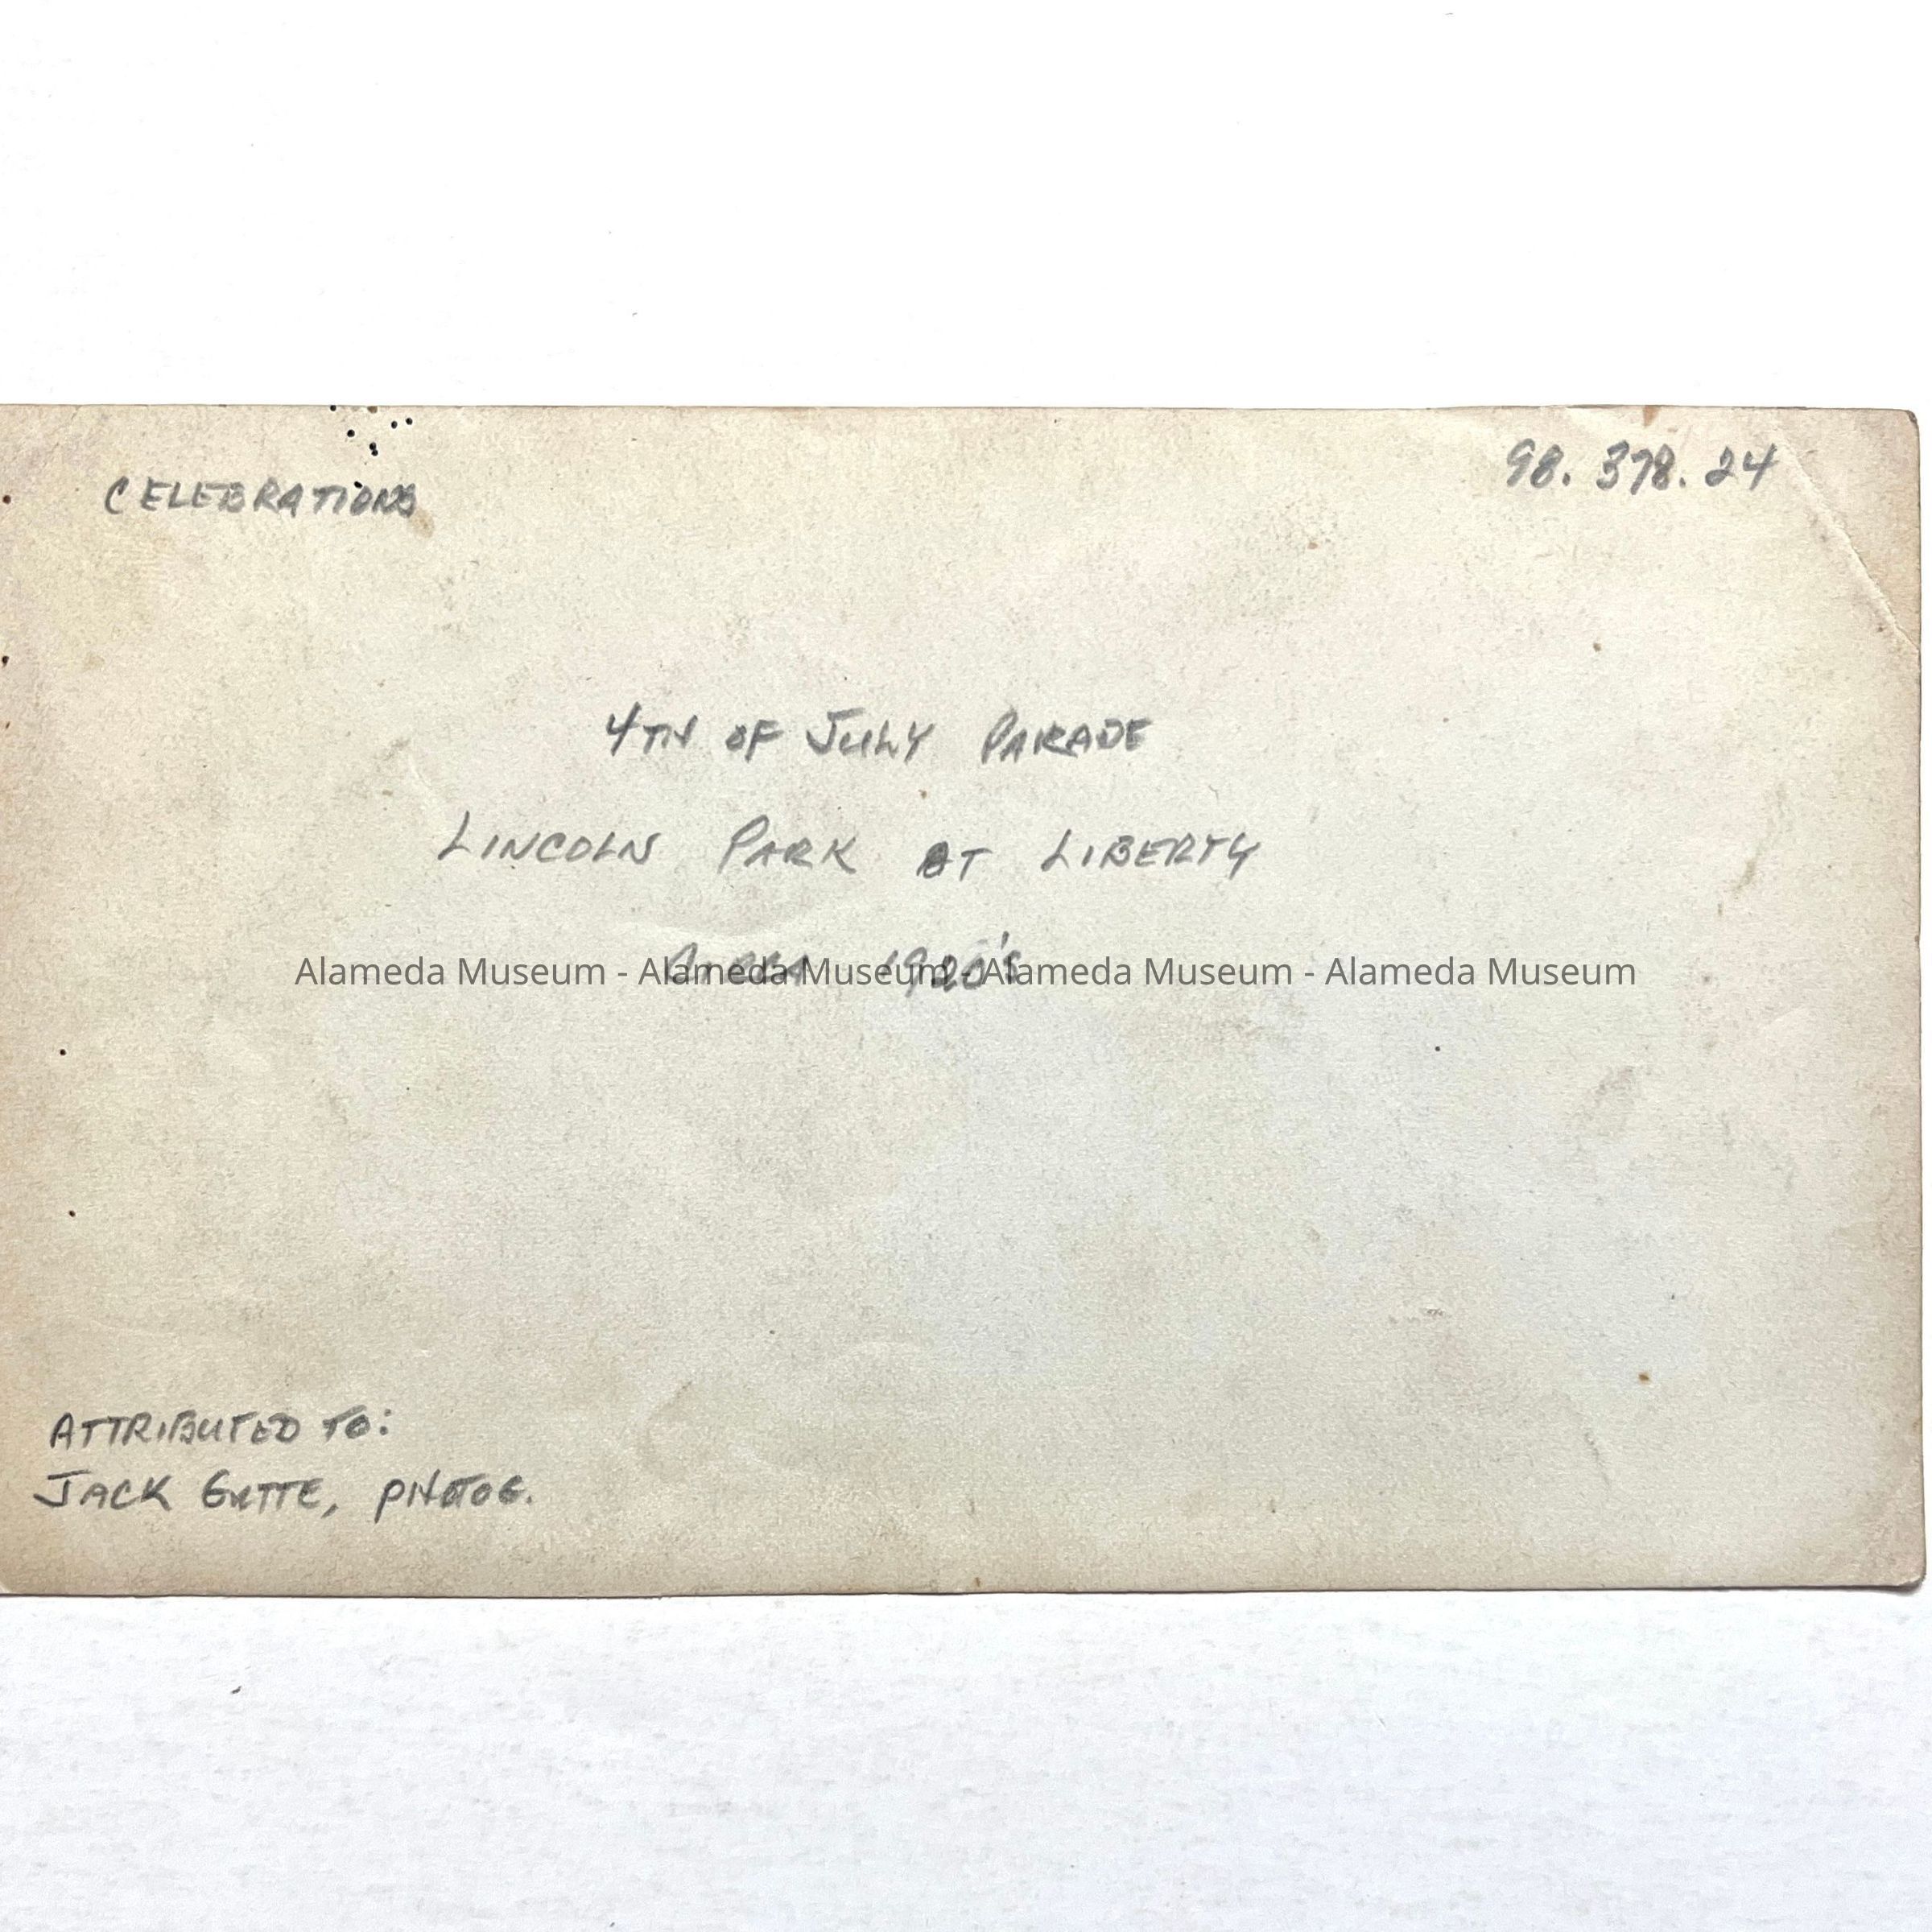 CELEBRATIONS
98.378.24
4TH OF JULY PARADE
LINCOLN PARK AT LIBERTY
CIRCA 1920'S
Alameda Museum - Alameda Museum - Alameda Museum - Alameda Museum
ATTRIBUTED TO:
JACK GUTTE, PHOTOG.